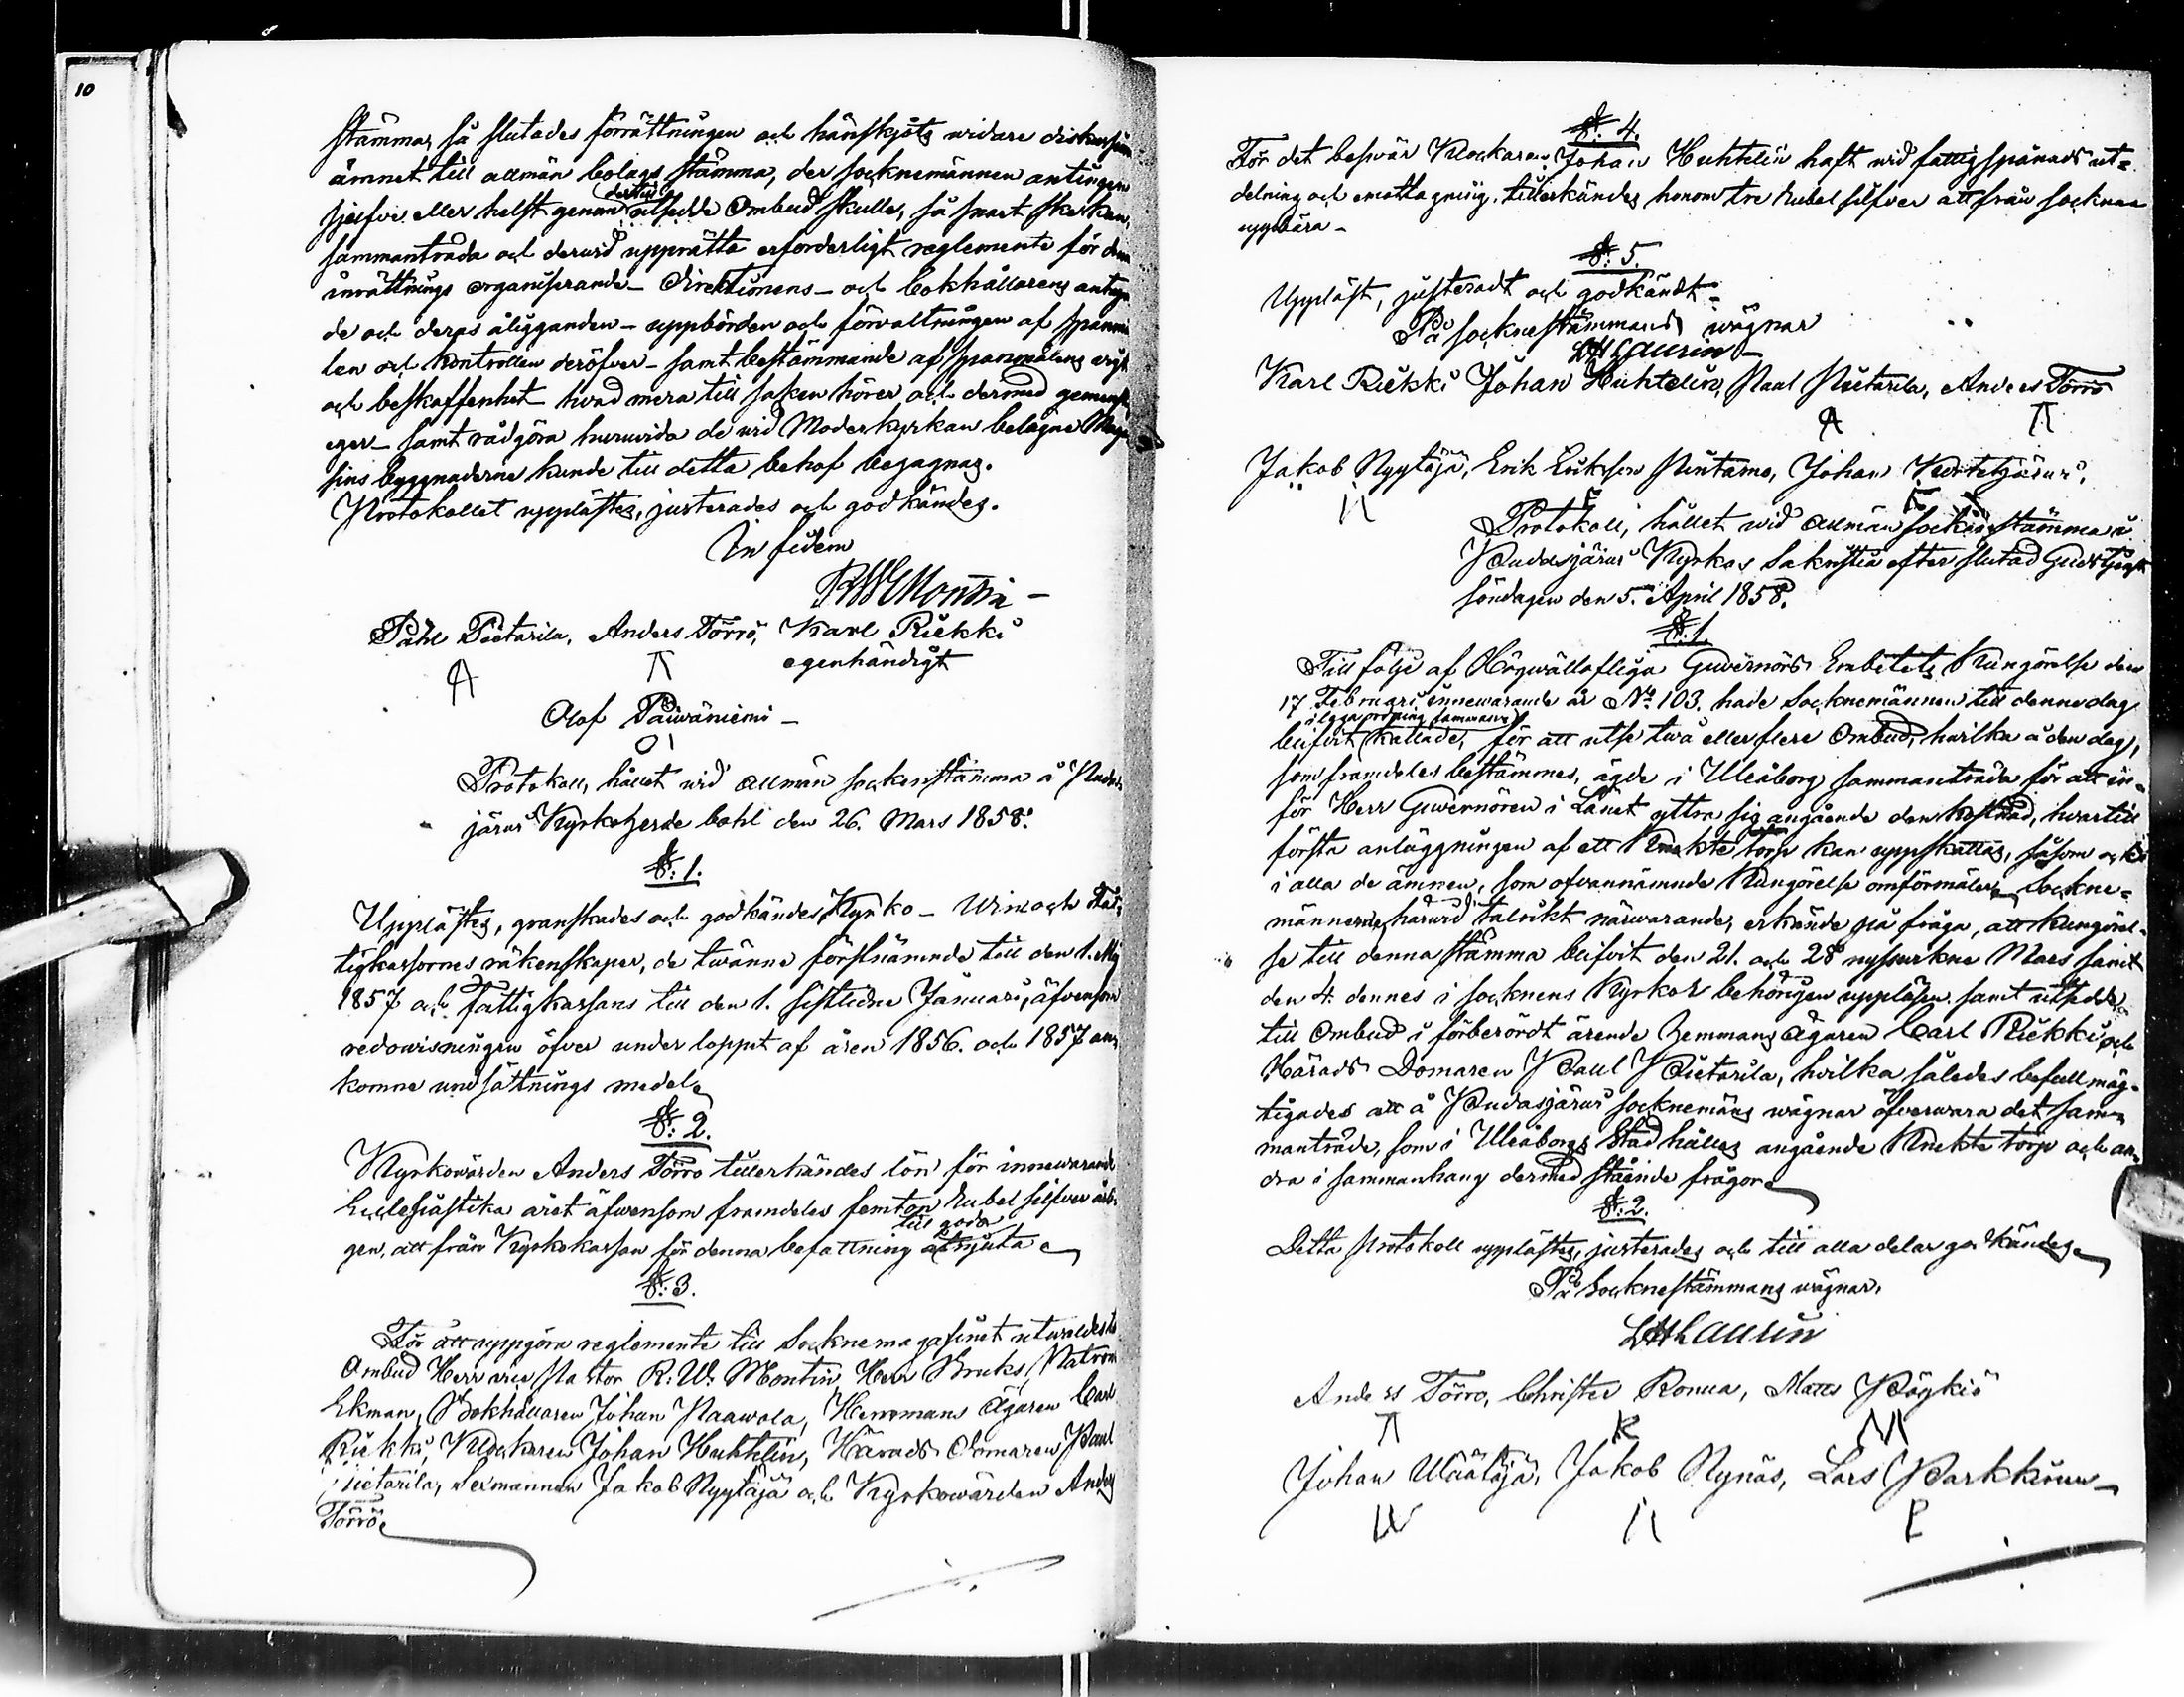 10
stämma, så slutades förrättningen och hänskjöts widare diskussions
ämnet till allmän bolags stämma, der socknemännen antingen
sjelfve eller helst genom dertill utsedde Ombud skulle, så snart ske kan,
sammanträda och derwid upprätta erforderligt reglemente för denna
inrättnings organiserande – Direktionens – och bokhållarens antagan
de och deras åligganden – uppbörden och förvaltningen af spanmå
len och kontrollen deröfver – samt bestämmande af spanmålens wigt
och beskaffenhet hvad mera till saken hörer och dermed gemenskap
eger – samt rådgöra huruvida de wid Moderkyrkan belägne Maga
sins byggnaderne kunde till detta behof begagnas.
Protokollet upplästes, justerades och godkändes.
In fidem
RWMontin –
Påhl Pietarila, Anders Törrö, Karl Riekki
egenhändigt
Olof Päiwäniemi –
Protokoll, hållet wid allmän sockenstämma å Pudas
järwi Kyrkoherde bohl den 26. Mars 1858.
§: 1.
Upplästes, granskades och godkändes Kyrko – Win och Fat-
tigkassornes räkenskaper, de twänne förstnämnde till den 1. Maj
1857 och Fattigkassans till den 1. sistledne Januari, äfvensom
redowisningen öfver under loppet af åren 1856. och 1857 an-
komne undsättnings medel.
§: 2.
Kyrkowärden Anders Törrö tillerkändes lön för innewarande
Ecclesiastika året äfwensom framdeles femton Rubel silfver årli-
till godo
gen, att från Kyrkokassan för denna befattning åtnjuta.
§: 3.
För att uppgöra reglemente till Socknemagasinet utwaldes till
Ombud Herr vice Pastor R. W. Montin, Herr Bruks Patron
Ekman, Bokhållaren Johan Paawola, Hemmans Ägaren Carl
Riekki, Klockaren Johan Huhtelin, Härads Domaren Paul
Pietarila, Sexmannen Jakob Nyytäjä och Kyrkowärden Anders
Törrö.
§: 4.
För det beswär Klockaren Johan Huhtelin haft wid fattigspånads ut-
delning och emottagning, tillerkändes honom tre Rubel silfver att från socknen
uppbära –
§: 5.
Uppläst, justeradt och godkändt.
På socknestämmans wägnar
LHLaurin –
Karl Riekki Johan Huhtelin, Paul Pietarila, Anders Törrö
Jakob Nyytäjä, Erik Eriksson Pintamo, Johan
Protokoll, hållet wid allmän sockenstämma i
Pudasjärwi Kyrkas Sakristia efter slutad Gudstjenst
söndagen den 5. April 1858.
§: 1.
Till följe af Högwällofliga Guvernörs Embetets Kungörelse den
17 Februari innewarande år No 103. hade Socknemännen till denne dag
blifvit kallade, för att utse twå eller flere Ombud, hvilka å den dag,
som framdeles bestämmes, ägde i Uleåborg sammanträda för att in-
för Herr Guvernören i Länet yttra sig angående den kostnad, hvartill
första anläggningen af ett Knekte torp kan uppskattas, såsom ock
i alla de ämnen, som ofvannämnde Kungörelse omförmäler. Sockne-
männerne, härwid talrikt närwarande, erkände på fråga, att Kungörel-
se till denna stämma blifvit den 21. och 28 nyssvekne Mars samt
den 4. dennes i socknens Kyrka behörigen uppläsen. samt utsedde
till Ombud i förberördt ärende Hemmans Ägaren Carl Riekki och
Härads Domaren Paul Pietarila, hvilka således befullmäg-
tigades att å Pudasjärwi socknemäns wägnar öfverwara det sam-
manträde, som i Uleåborgs Stad hålles angående Knekte torp och an-
dra i sammanhang dermed stående frågor.
§: 2.
Detta Protokoll upplästes, justerades och till alla delar godkändes.
På Socknestämmans wägnar,
LHLaurin
Anders Törrö, Christer Ronua, Matts Pöykiö
Johan Uliätäjä, Jakob Nynäs, Lars Parkkinen –